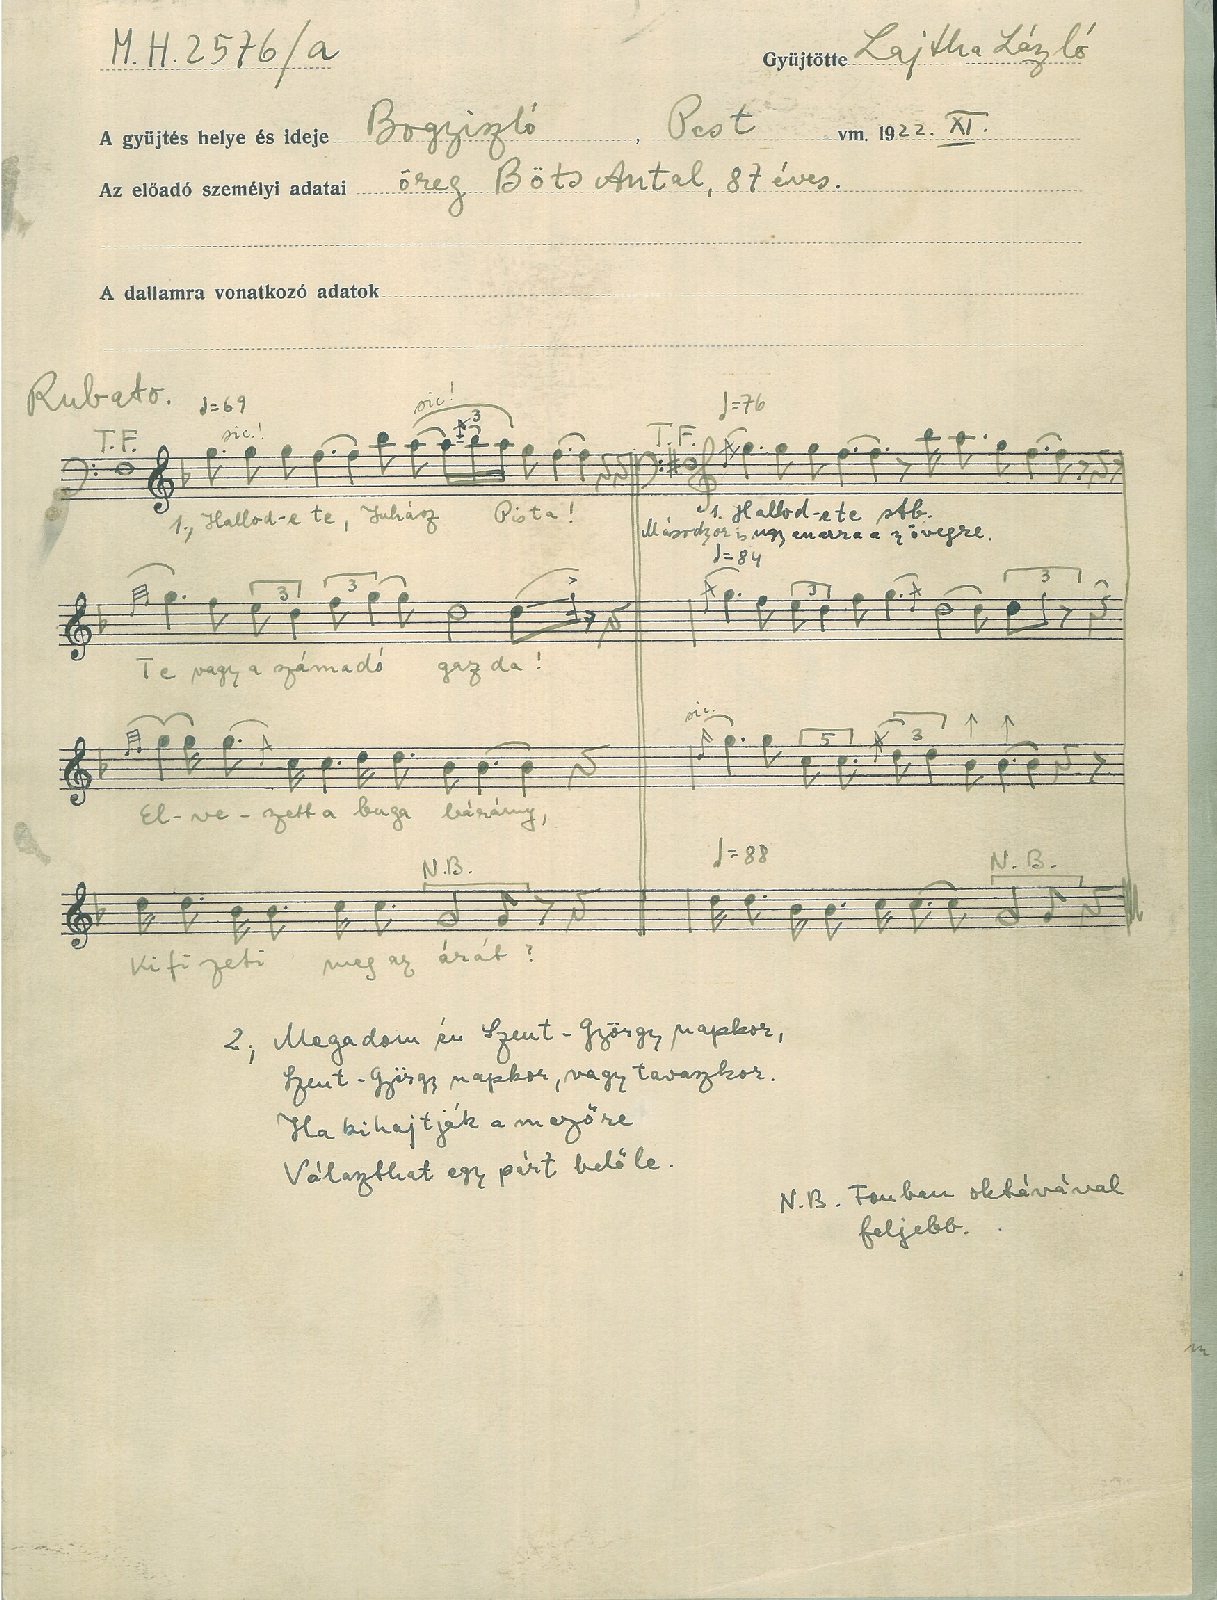 M.H. 2576/a
Gyüjtötte Lajtha László
A gyüjtés helye és ideje Bogyiszló, Pest vm. 1922. XI.
Az előadó személyi adatai öreg Böts Antal, 87 éves.
A dallamra vonatkozó adatok
Rubato. ♩=69 sic! ♩=76
T.F. sic! 3 T.F.
1., Hallod-e te, Juhász Pista! 1. Hallod-e te stb.
Másodszor is ugyanarra a szövegre.
♩=84
3 3 3 3
Te vagy a számadó gazda!
sic. 5 3
El-ve-zett a buga bárány,
N.B. ♩=88 N.B.
Kifizeti meg az árát?
2., Megadom én Szent-György napkor,
Szent-György napkor, vagy tavaszkor.
Ha kihajtják a mezőre
Választhat egy párt belőle.
N.B. Fonban oktávával
feljebb.